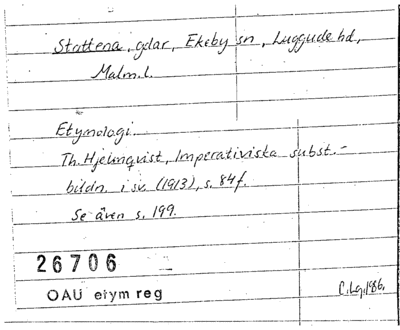 Stattena, gdar, Ekeby sn, Luggude hd,
Malm. l.
Etymologi.
Th. Hjelmqvist, Imperativista subst.-
bildn. i sv. (1913), s. 84f.
Se även s. 199.
26706
OAU etym reg
C. Lg. 1986.